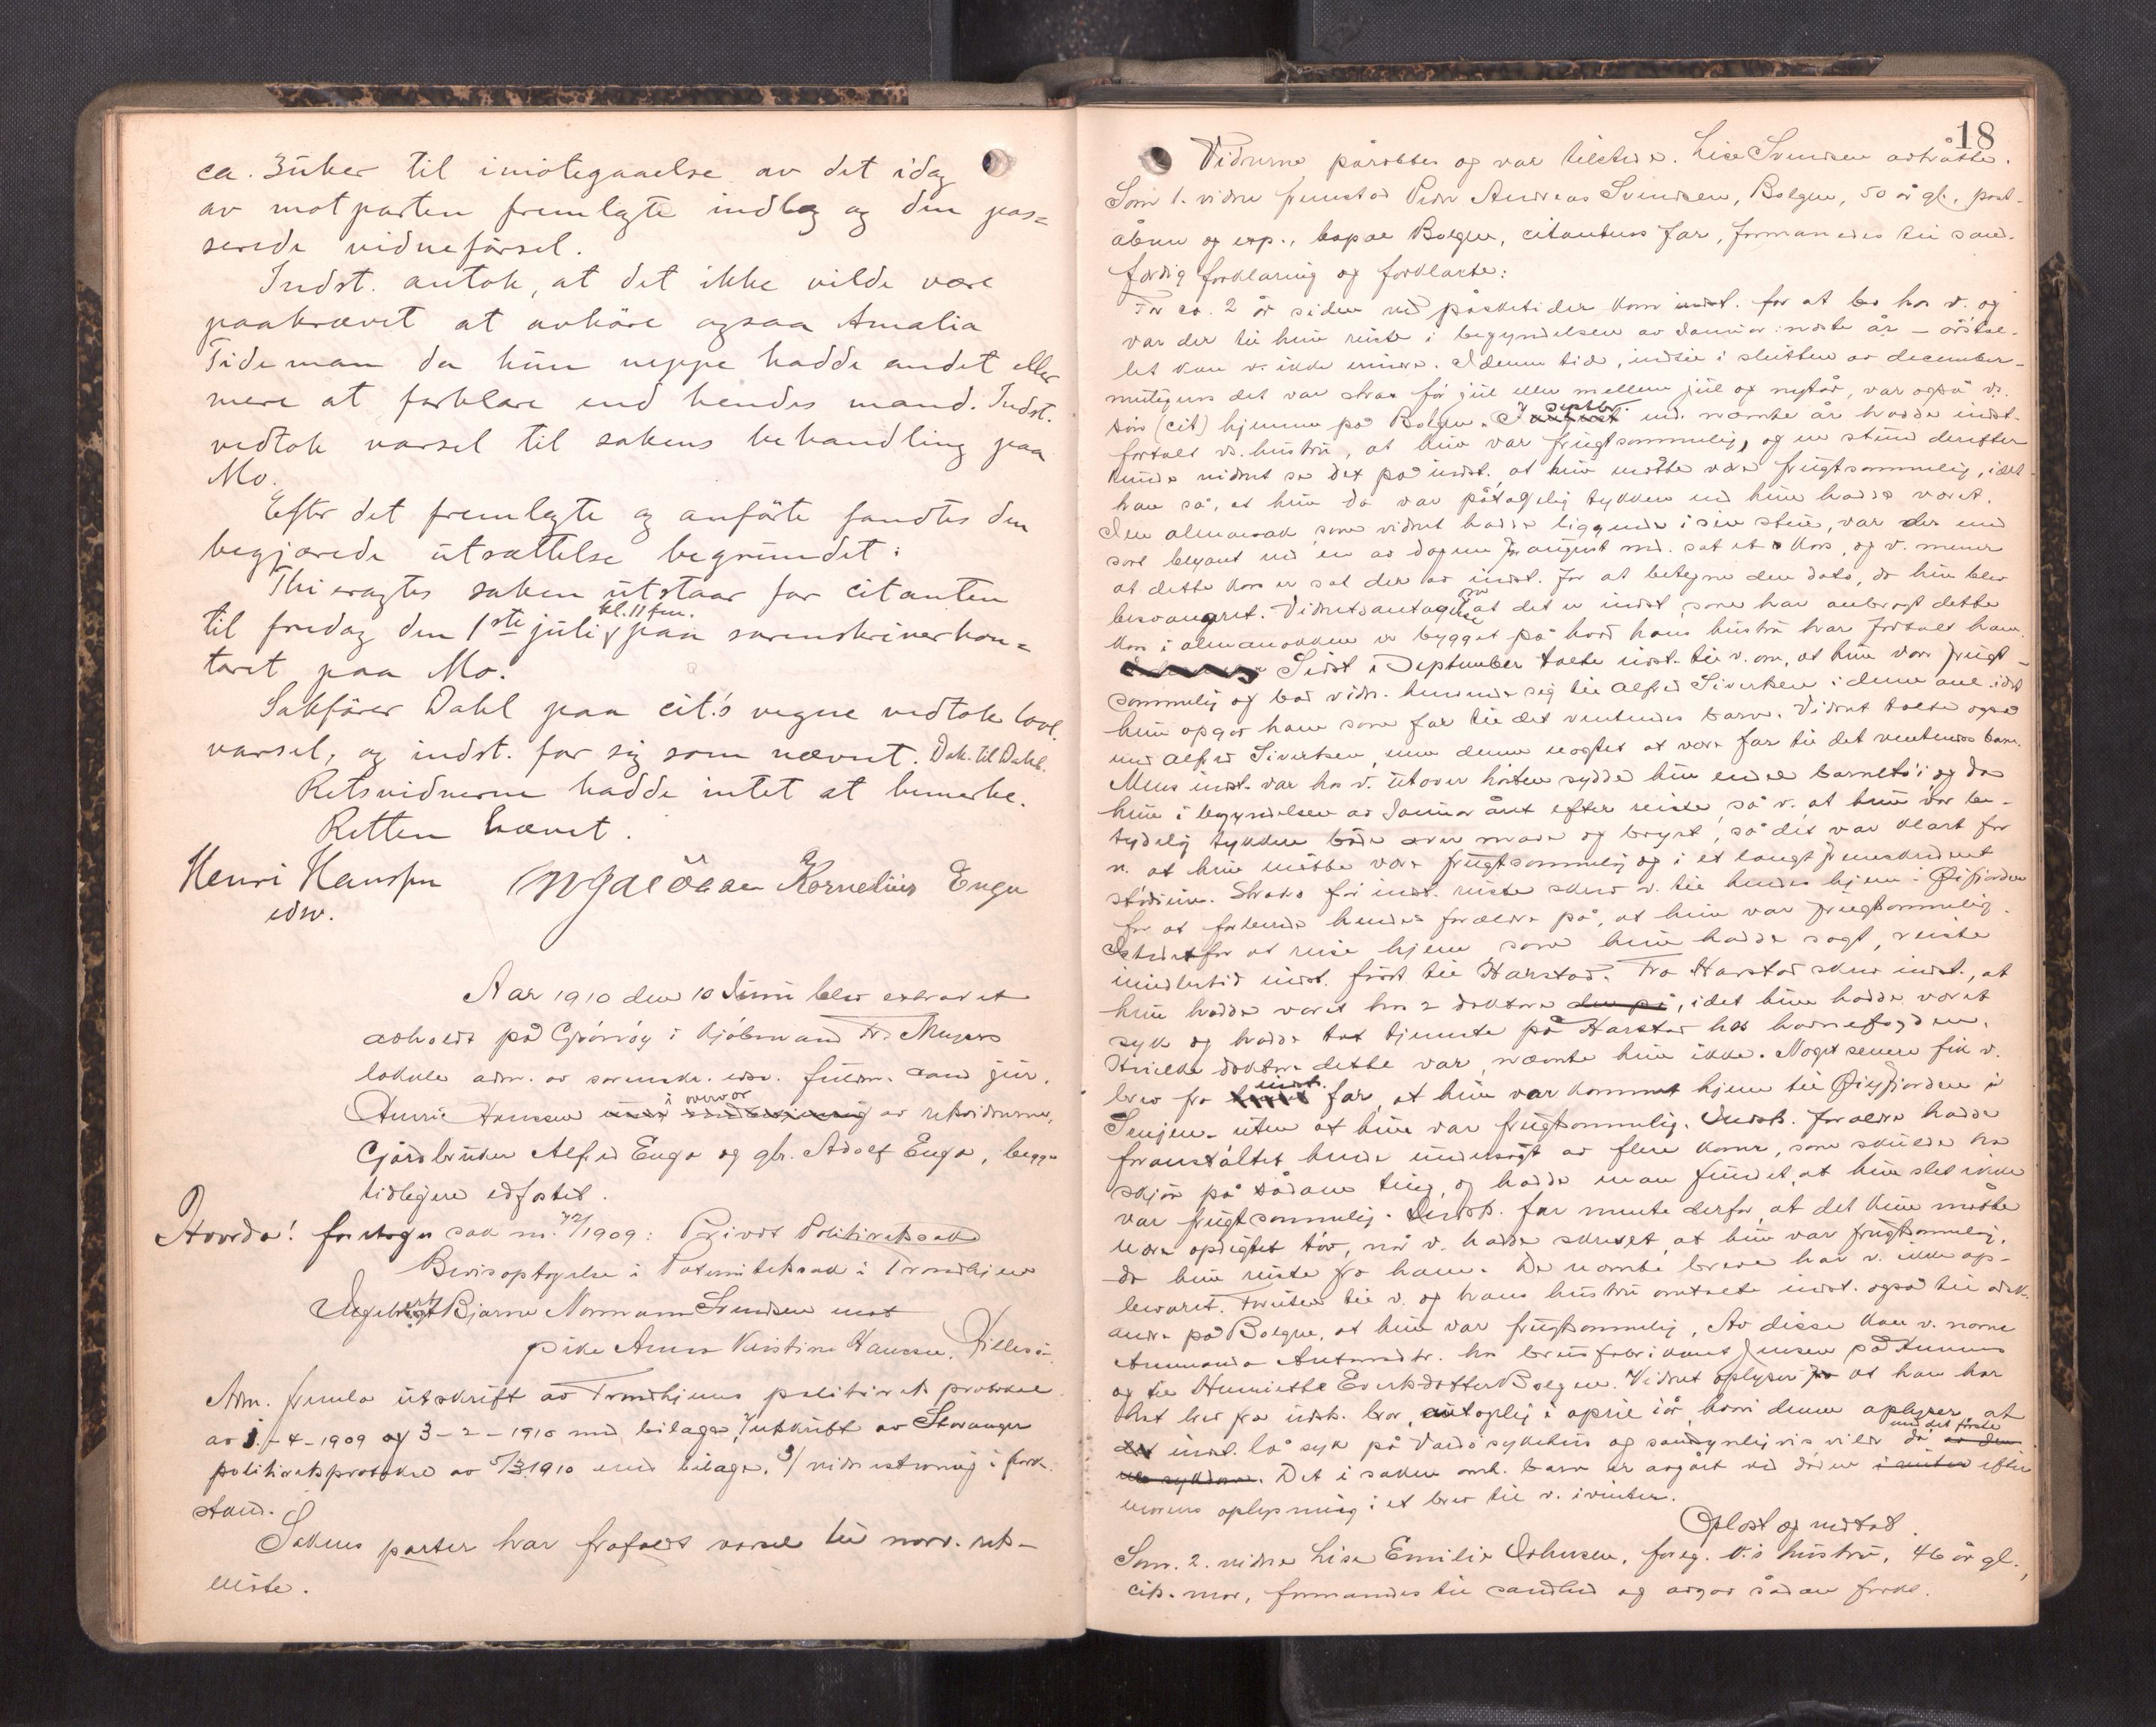 ca. 3 uker til imøtegaaelse av det idag
av motparten fremlagte indlæg og den pas=
serede vidneførsel.
Indst. antok, at det ikke vilde være
paakrævet at avhøre ogsaa Amalia
Tideman da hun neppe hadde andet eller
mere at forklare end hendes mand. Indst.
vedtok varsel til sakens behandling paa
Mo.
Efter det fremlagte og anførte fandtes den
begjærede utsættelse begrundet:
Thi eragtes saken utstaar for citanten
til fredag den 1ste juli kl. 11 fm. paa sorenskriverkon=
toret paa Mo.
Sakfører Dahl paa cit.'s vegne vedtok lovl.
varsel, og indst. for sig som nævnt. Dok. til Dahl.
Retsvidnerne hadde intet at bemerke.
Retten hævet.
Henri Hanssen Kornelius Enga
edsv.
Aar 1910 den 10 Juni blev extraret
avholdt på Grönöy i kjöbmand Fr. Meyers
lokale adm. av sorenskr. edsv. fuldm. cand jur.
Henri Hanssen i overvær av retsvidnerne,
Gjårdbruker Alfred Enga og gbr. Adolf Enga, begge
tidligere edfæstet.
Hvorda! foretages sak nr. 72/1909: Privat Politiretssak
Bevisoptagelse i Paternitetssak i Trondhjem
Ingebrigt Bjarne Normann Svendsen mot
pike Anna Kristine Hansen, Villesö.
Adm. fremla utskrift av Trondhjems politirets protokol
av 1-4-1909 og 3-2-1910 med bilage, 2/ utskrift av Stavanger
politiretsprotokol av 5/3 1910 med bilage. 3/ vidnestevning i fork.
stand.
Sakens parter har frafaldt varsel til nærv. ret-
möte.
18
Vidnerne påroptes og var tilstede. Lise Svendsen avtrådte.
Som 1. vidne fremstod Peder Andreas Svendsen, Bolgen, 50 år gl., post-
åbner og exp., bopæl Bolgen, citantens far, formanedes til sand-
færdig forklaring og forklarte:
For ca. 2 år siden ved påsketider kom indst. for at bo hos v. og
var der til hun reiste i begyndelsen av Januar næste år – årstal-
let kan v. ikke erindre. I denne tid, indtil i slutten av december
muligens det var straks før jul eller mellem jul og nytår, var også v.s
sön (cit) hjemme på Bolgen. I septbr. md. nævnte år hadde indst.
fortalt vs. hustru, at hun var frugtsommelig, og en stund derefter
kunde vidnet se det på indst. at hun måtte være frugtsommelig, idet
han så, at hun da var påtagelig tykkere end hun hadde været.
I en almanak som vidnet hadde liggende i sin stue, var der med
sort blyant ved en av dagene for august md. sat et kors, og v. mener
at dette kors er sat der av indst. for at betegne den dato, da hun blev
besvangret. Vidnets antagelse om at det er indst. som har anbragt dette
kors i almanakken er bygget på hvad hans hustru har fortalt ham.
Sidst i September talte indst. til v. om, at hun var frugt-
sommelig og bad vidn. henvende sig til Alfred Sivertsen i denne anl. idet
hun opgav ham som far til det ventendes barn. Vidnet talte også
med Alfred Sivertsen, men denne nægtet at være far til det ventendes barn.
Mens indst. var hos v. utover hösten sydde hun endel barnetöi, og da
hun i begyndelsen av Januar året efter reiste, så v. at hun var be-
tydelig tykkere både over mave og bryst, så det var klart for
v. at hun måtte være frugtsommelig og i et langt fremskredent
stadium. Straks før indst. reiste skrev v. til hendes hjem i Öifjorden
for at forberede hendes forældre på, at hun var frugtsommelig.
Istedetfor at reise hjem som hun hadde sagt, reiste
imidlertid indst. först til Harstad. Fra Harstad skrev indst., at
hun hadde været hos 2 doktore, idet hun hadde været
syk og hadde tat tjeneste på Harstad hos havnefogden.
Hvilke doktore dette var, nævnte hun ikke. Noget senere fik v.
brev fra indst. far, at hun var kommet hjem til Öifjorden i
Senjen uten at hun var frugtsommelig. Indst. forældre hadde
foranstaltet hende undersögt av flere koner, som skulde ha
skjön på sådane ting, og hadde man fundet, at hun slet ikke
var frugtsommelig. Indst. far mente derfor at det hun måtte
være opdigtet töv, når v. hadde skrevet, at hun var frugtsommelig,
da hun reiste fra ham. De nævnte breve har v. ikke op-
bevaret. Foruten til v. og hans hustru omtalte indst. også til
andre på Bolgen, at hun var frugtsommelig. Av disse kan v. nævne
Antonsdtr. hos brusfabrikant Jensen på
og til Henriette Evertsdatter Bolgen. Vidnet oplyser at han har
hat brev fra indst. bror, antagelig i april iår, hvori denne oplyser at
indst. lå syk på Vardö sykehus og sandsynligvis vilde dö med det förste.
Det i saken omh. barn er avgået ved döden efter
morens oplysning i et brev til v. i vinter.
Oplæst og vedtat.
Som 2. vidne Lise Emilie Johnsen, foreg. v.s hustru, 46 år gl.,
cits. mor, formanedes til sandhed og avgav sådan forkl.